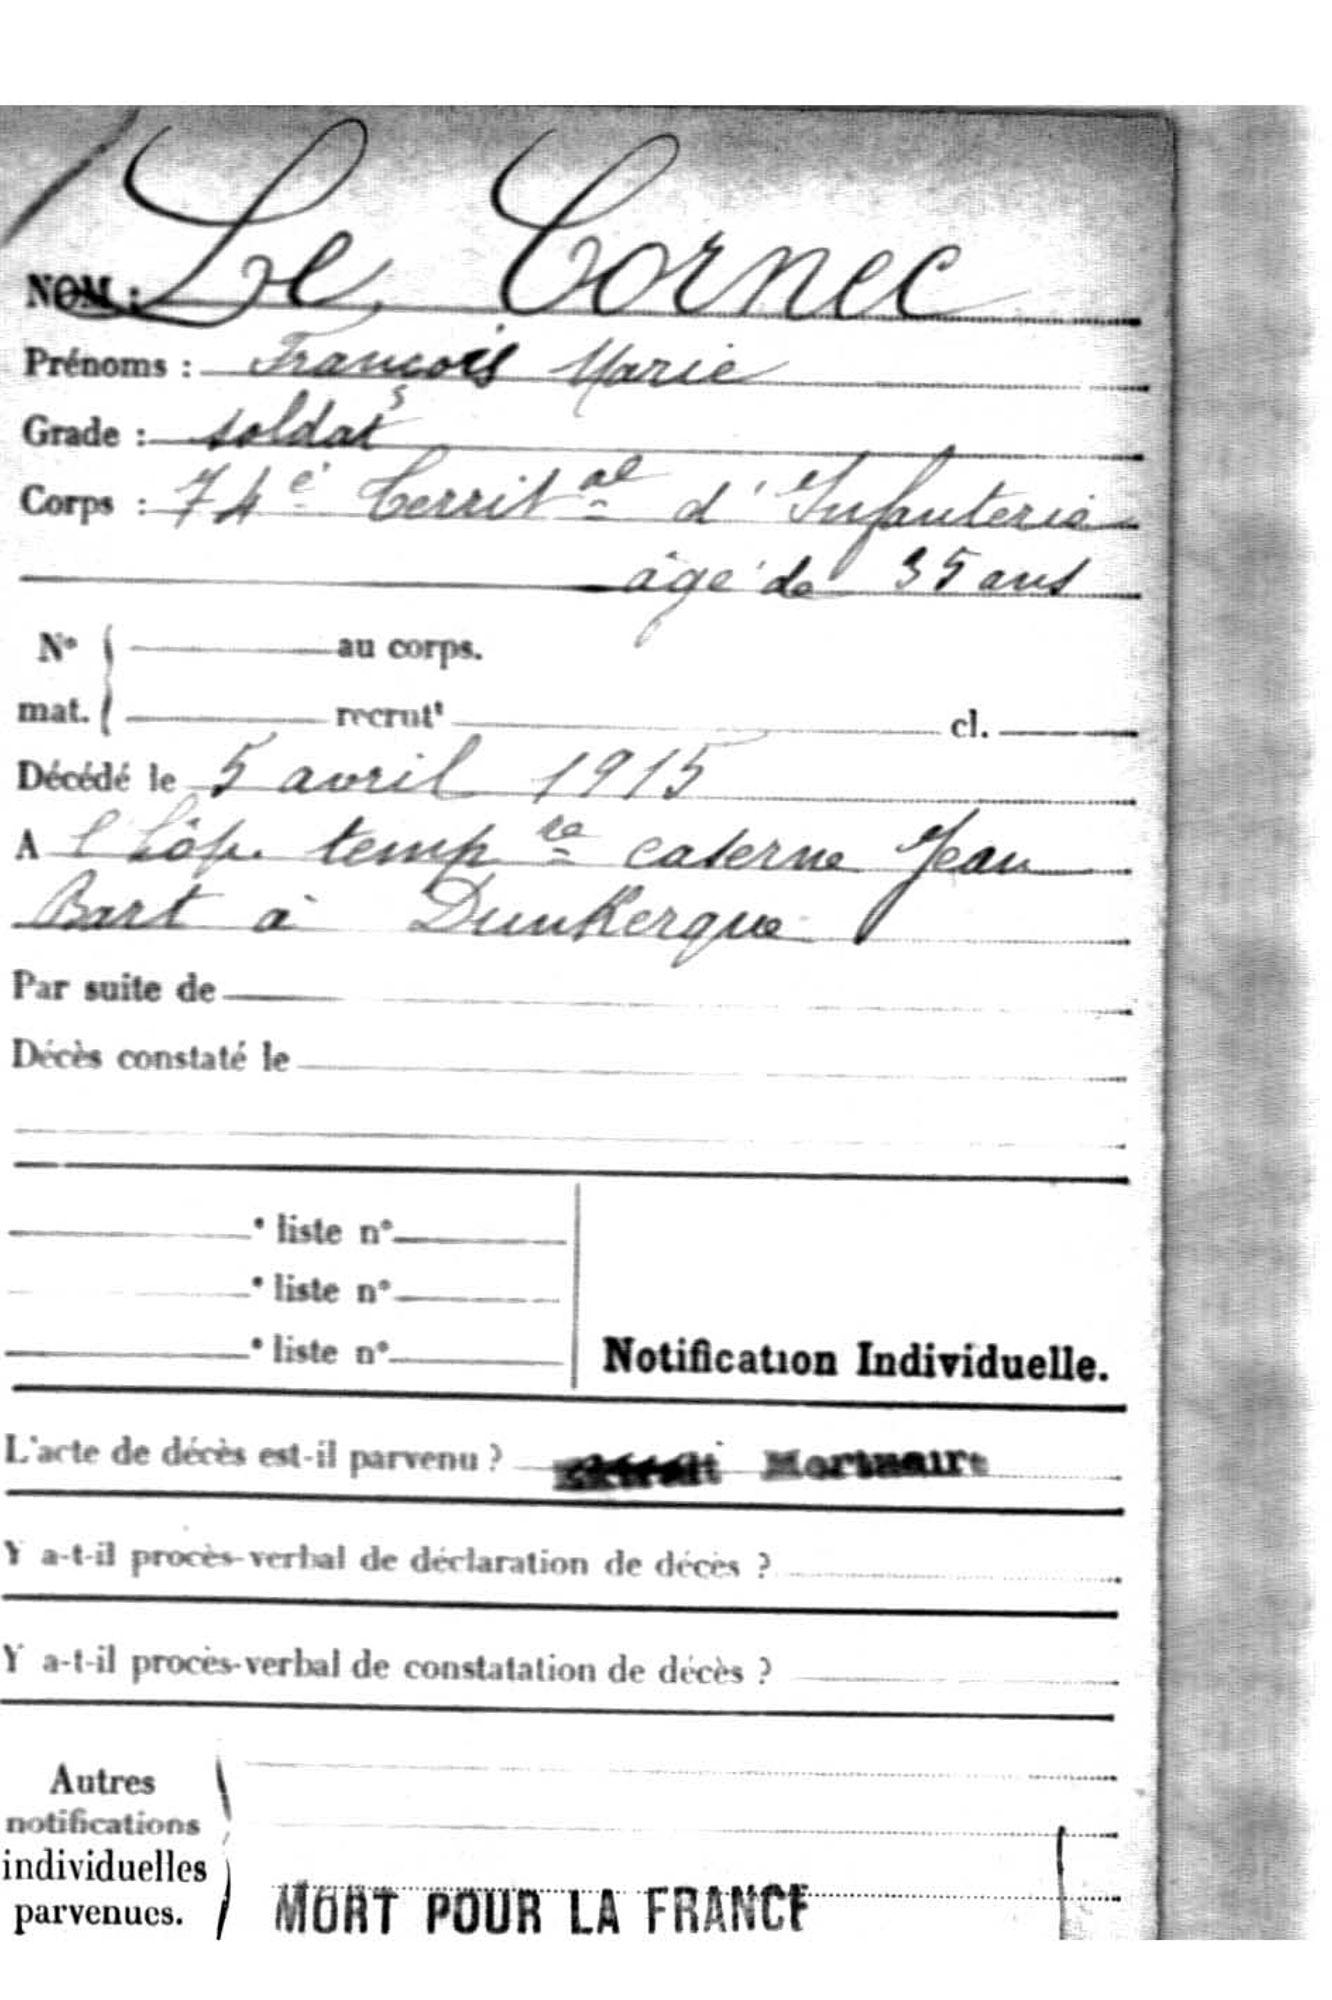 NOM : Le Cornec
Prénoms : François Marie
Grade : soldat
Corps : 74e Territal d'Infanterie
âgé de 35 ans
No au corps.
mat. recrutt cl.
Décédé le 5 avril 1915
A l'hôp. tempre caserne Jean
Bart à Dunkerque
Par suite de
Décès constaté le
e liste no
e liste no
e liste no
Notification Individuelle.
L'acte de décès est-il parvenu ? Extrait Mortuaire
Y a-t-il procès-verbal de déclaration de décès ?
Y a-t-il procès-verbal de constatation de décès ?
Autres
notifications
individuelles
parvenues.
MORT POUR LA FRANCE